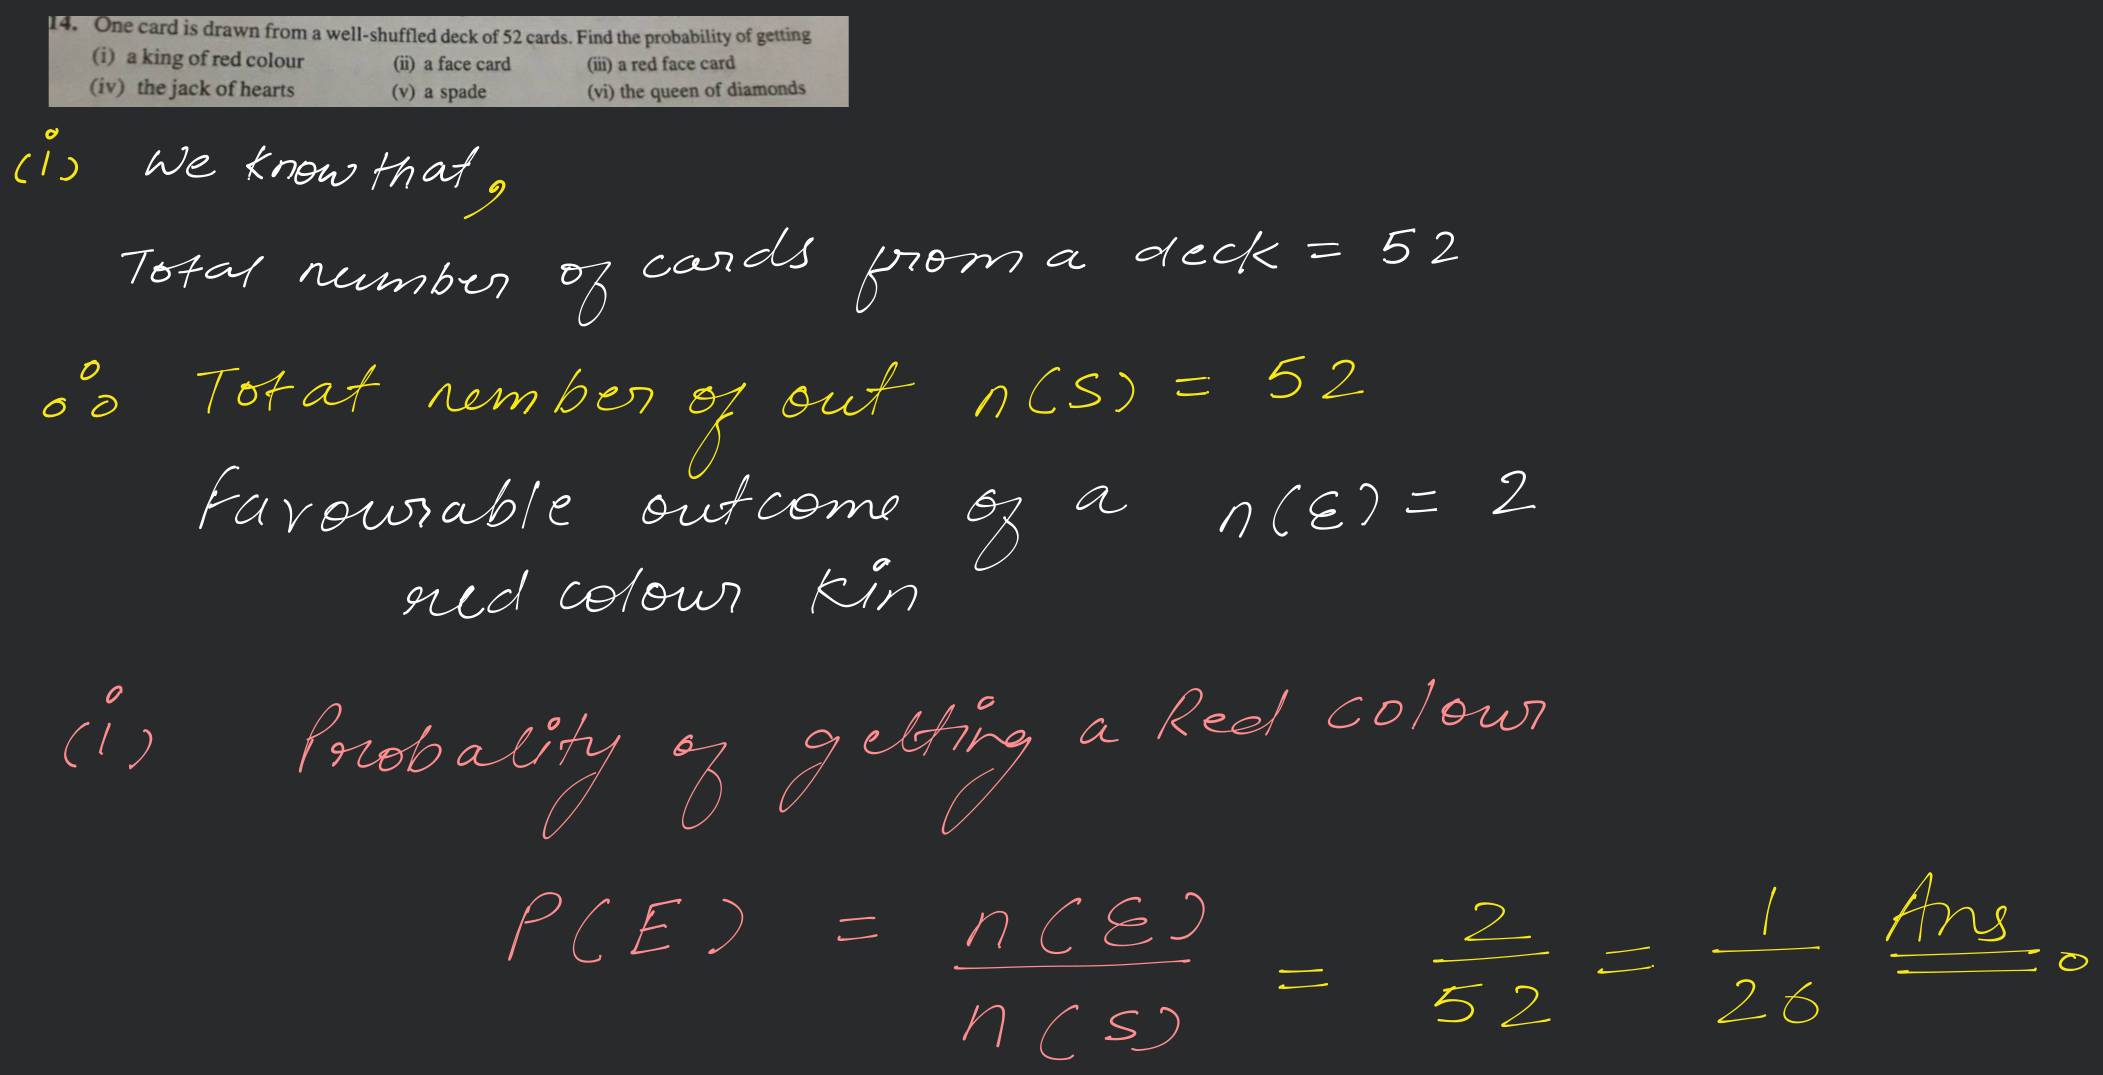 14. One card is drawn from a well-shuffled deck of 52 cards. Find the probability of getting
(i) a king of red colour (ii) a face card (iii) a red face card
(iv) the jack of hearts (v) a spade (vi) the queen of diamonds
(i) We know that,
Total number of cards from a deck = 52
∴ Total nember of out n(S) = 52
Favourable outcome of a n(E) = 2
red colour kin
(i) Probality of getting a Red colour
P(E) = n(E)/n(S) = 2/52 = 1/26 Ans.